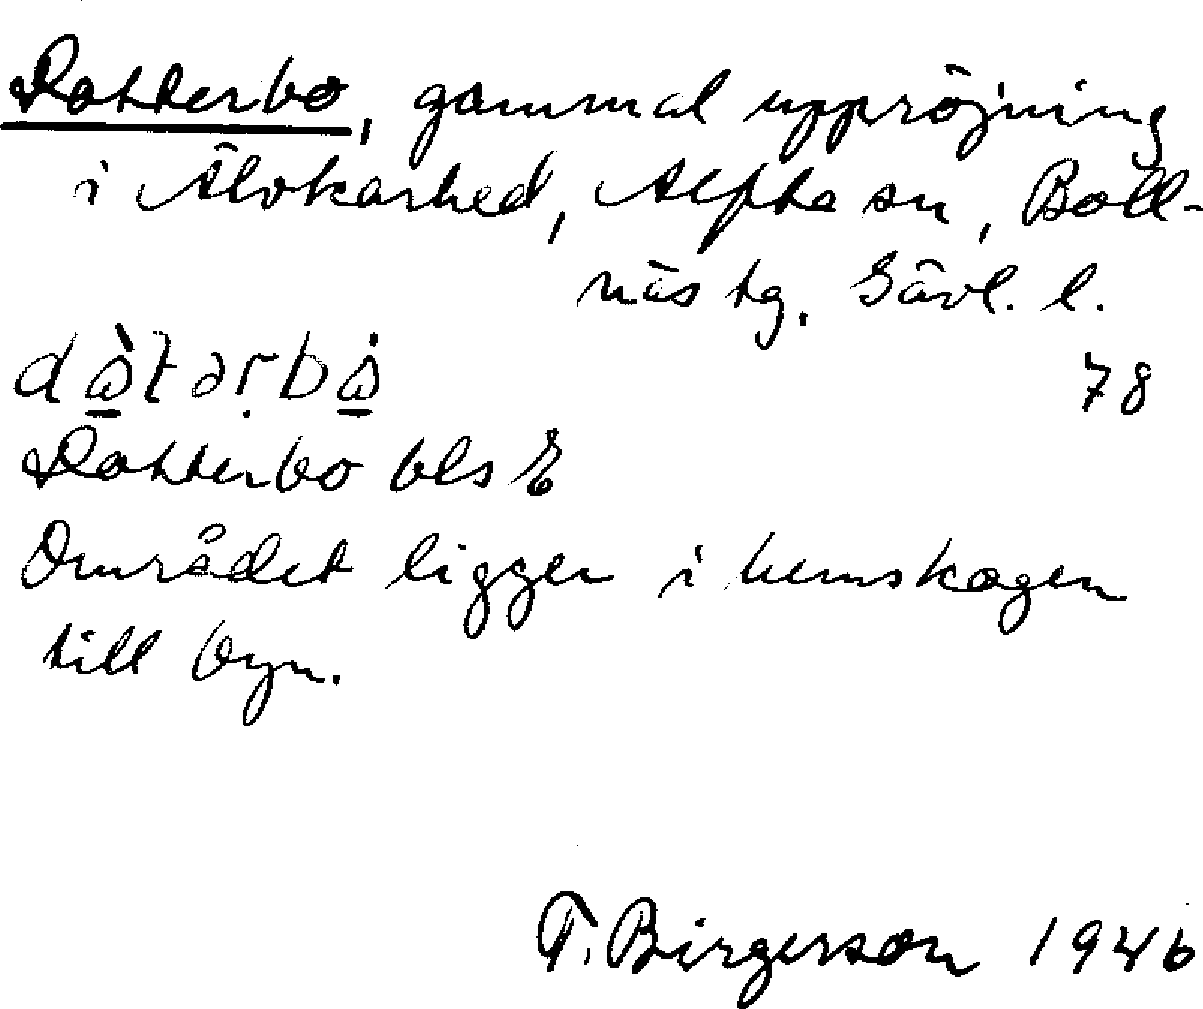 Dotterbo, gammal uppröjning
i Älvkarhed, Alfta sn, Boll-
näs tg. Gävl. l.
78
Dotterbo bls E
Området ligger i hemskogen
till byn.
T. Birgerson 1946